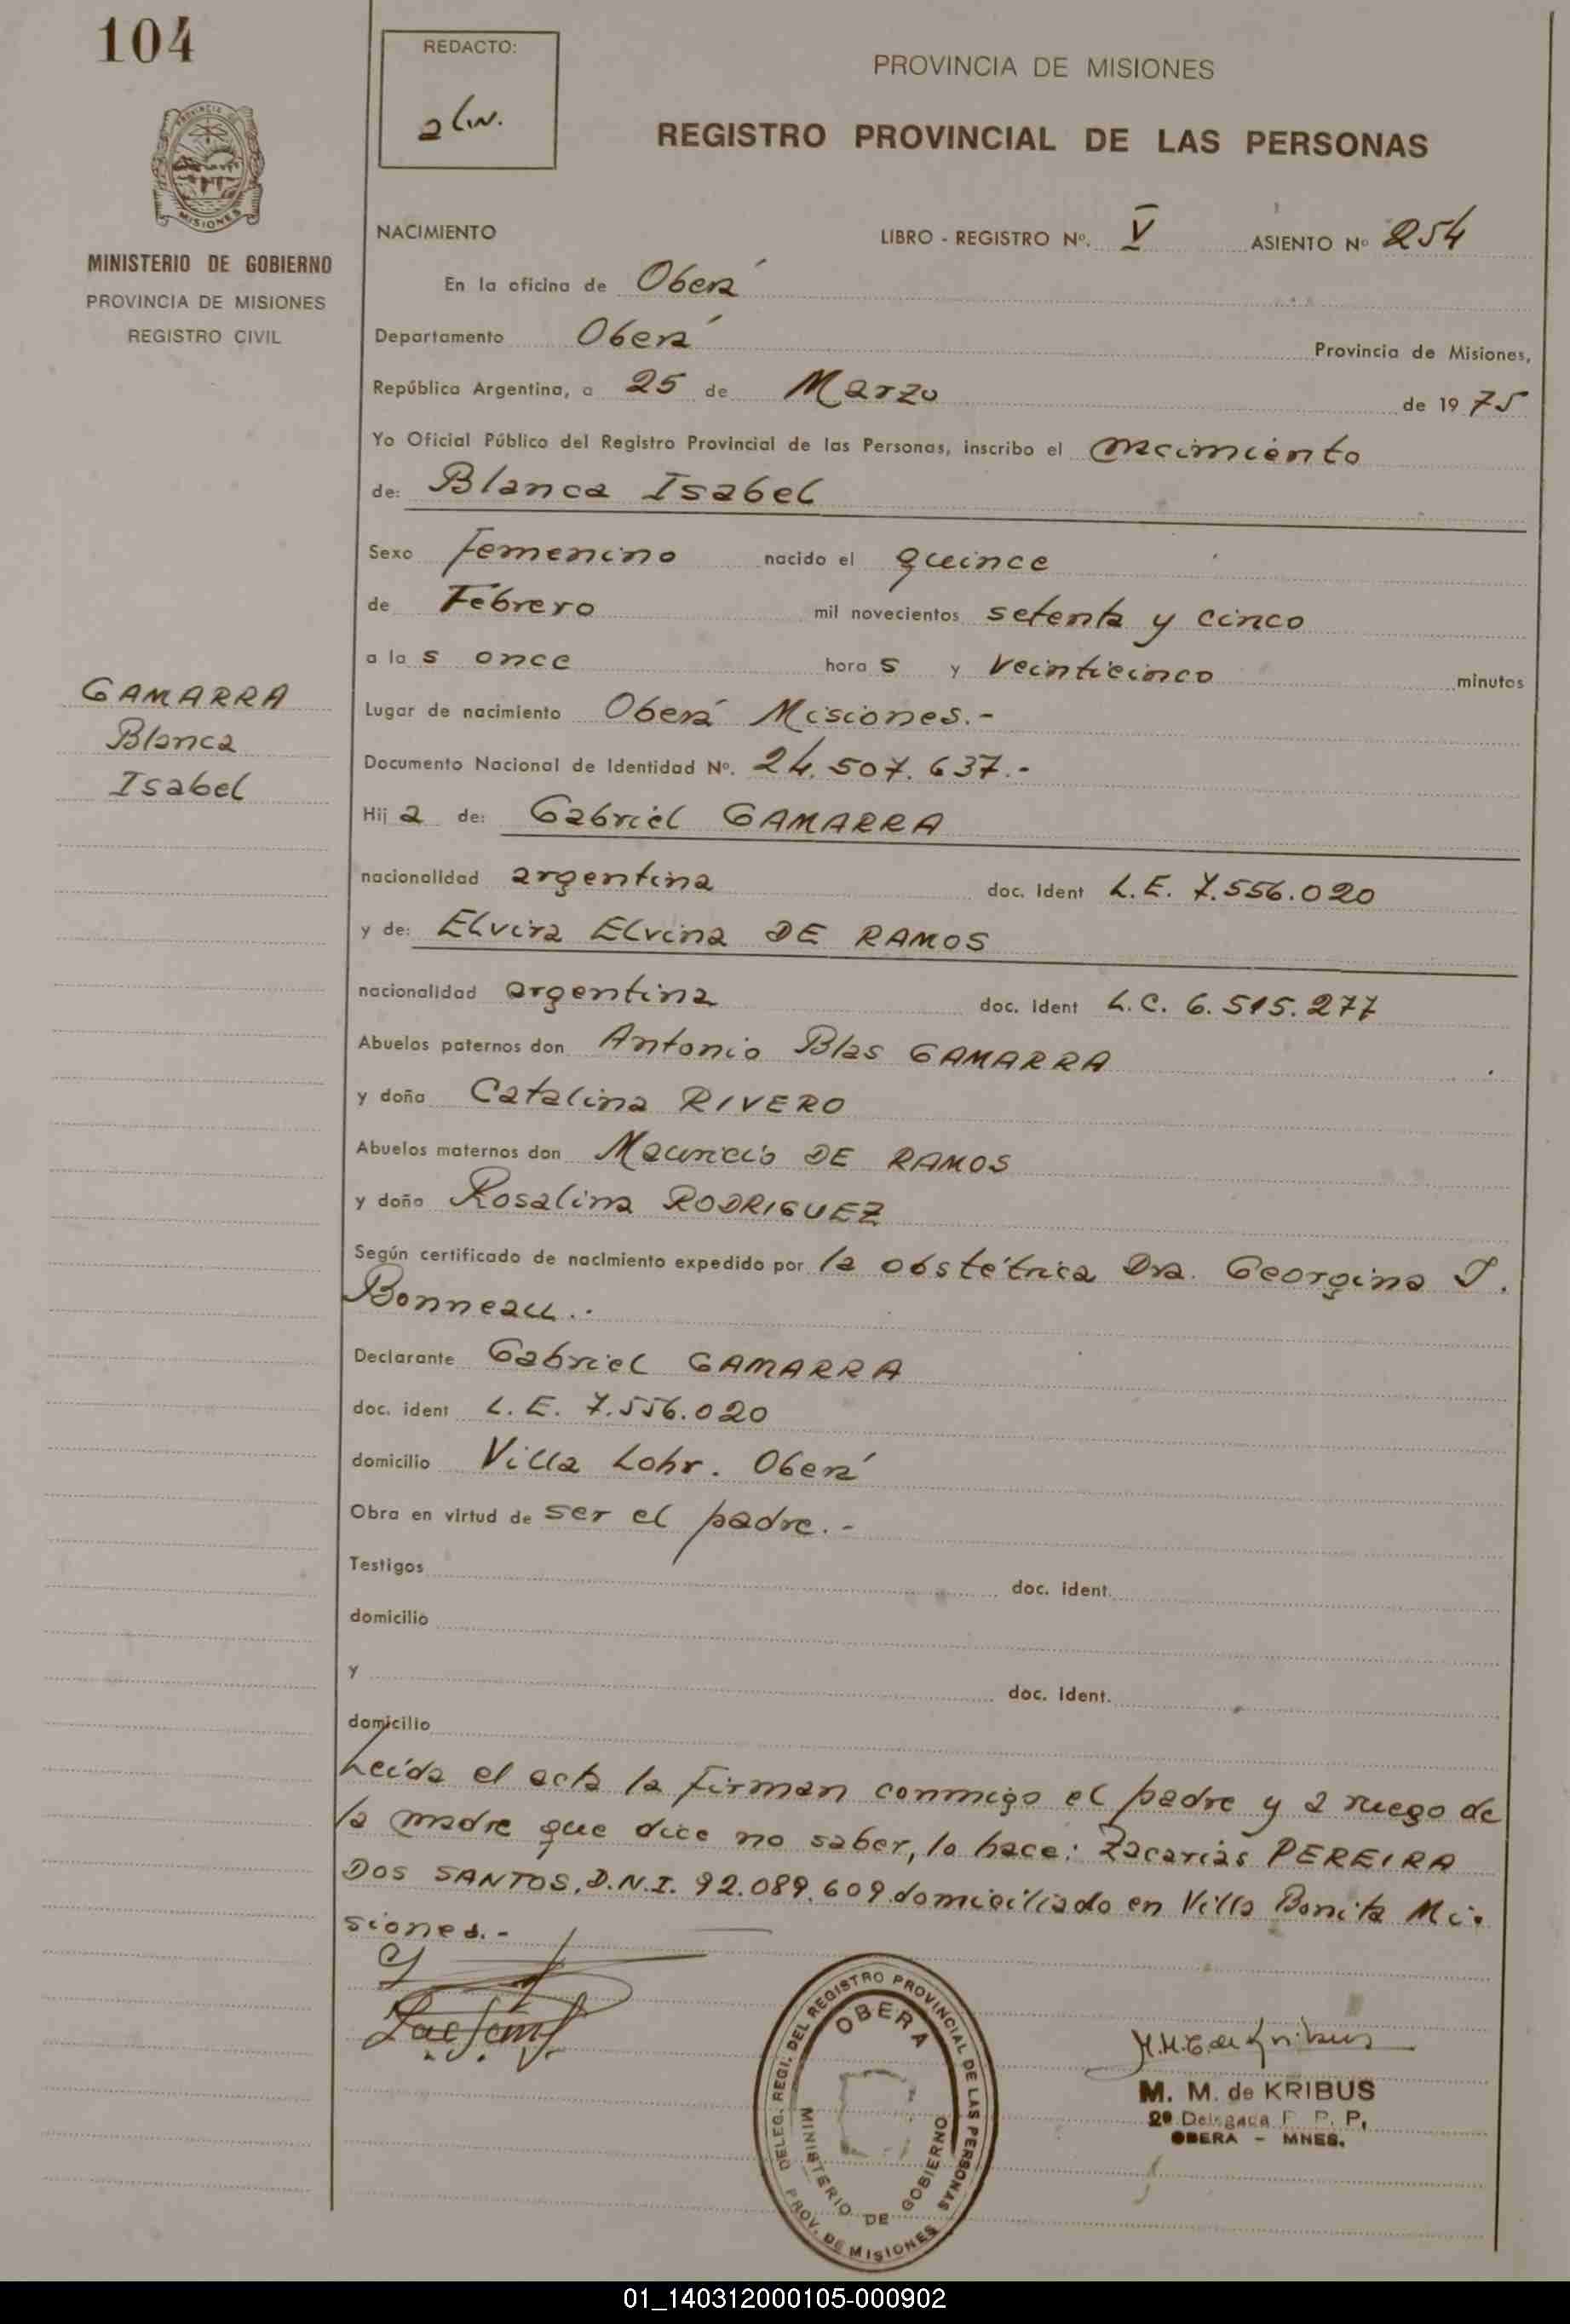 104
REDACTO:
PROVINCIA DE MISIONES
REGISTRO PROVINCIAL DE LAS PERSONAS
PROVINCIA DE
MISIONES
MINISTERIO DE GOBIERNO
PROVINCIA DE MISIONES
REGISTRO CIVIL
NACIMIENTO LIBRO - REGISTRO Nº. V ASIENTO Nº 254
En la oficina de Oberá
Departamento Oberá Provincia de Misiones,
República Argentina, a 25 de Marzo de 1975
Yo Oficial Público del Registro Provincial de las Personas, inscribo el nacimiento
de: Blanca Isabel
Sexo Femenino nacido el quince
de Febrero mil novecientos setenta y cinco
a las once horas y veinticinco minutos
GAMARRA
Blanca
Isabel
Lugar de nacimiento Oberá Misiones.-
Documento Nacional de Identidad Nº. 24.507.637.-
Hija de: Gabriel GAMARRA
nacionalidad argentina doc. Ident L.E. 7.556.020
y de: Elvira Elvina DE RAMOS
nacionalidad argentina doc. Ident L.C. 6.515.277
Abuelos paternos don Antonio Blas GAMARRA
y doña Catalina RIVERO
Abuelos maternos don Mauricio DE RAMOS
y doña Rosalina RODRIGUEZ
Según certificado de nacimiento expedido por la obstétrica Dra. Georgina J.
Bonneau.-
Declarante Gabriel GAMARRA
doc. ident L.E. 7.556.020
domicilio Villa Lohr. Oberá
Obra en virtud de ser el padre.-
Testigos doc. ident.
domicilio
y doc. Ident.
domicilio
Leída el acta la firman conmigo el padre y a ruego de
la madre que dice no saber, lo hace: Zacarías PEREIRA
DOS SANTOS, D.N.I. 92.089.609 domiciliado en Villa Bonita Mi-
siones.-
DELEG. REGI. DEL REGISTRO PROVINCIAL DE LAS PERSONAS
OBERA
MINISTERIO DE GOBIERNO
PROV. DE MISIONES
M. M. de KRIBUS
2ª Delegada P. P.
OBERA - MNES.
01_140312000105-000902